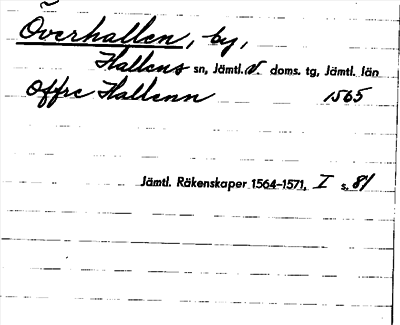 Överhallen, by,
Hallens sn, Jämtl. v. doms. tg, Jämtl. län
Offre Hallenn 1565
Jämtl. Räkenskaper 1564–1571, I s. 81